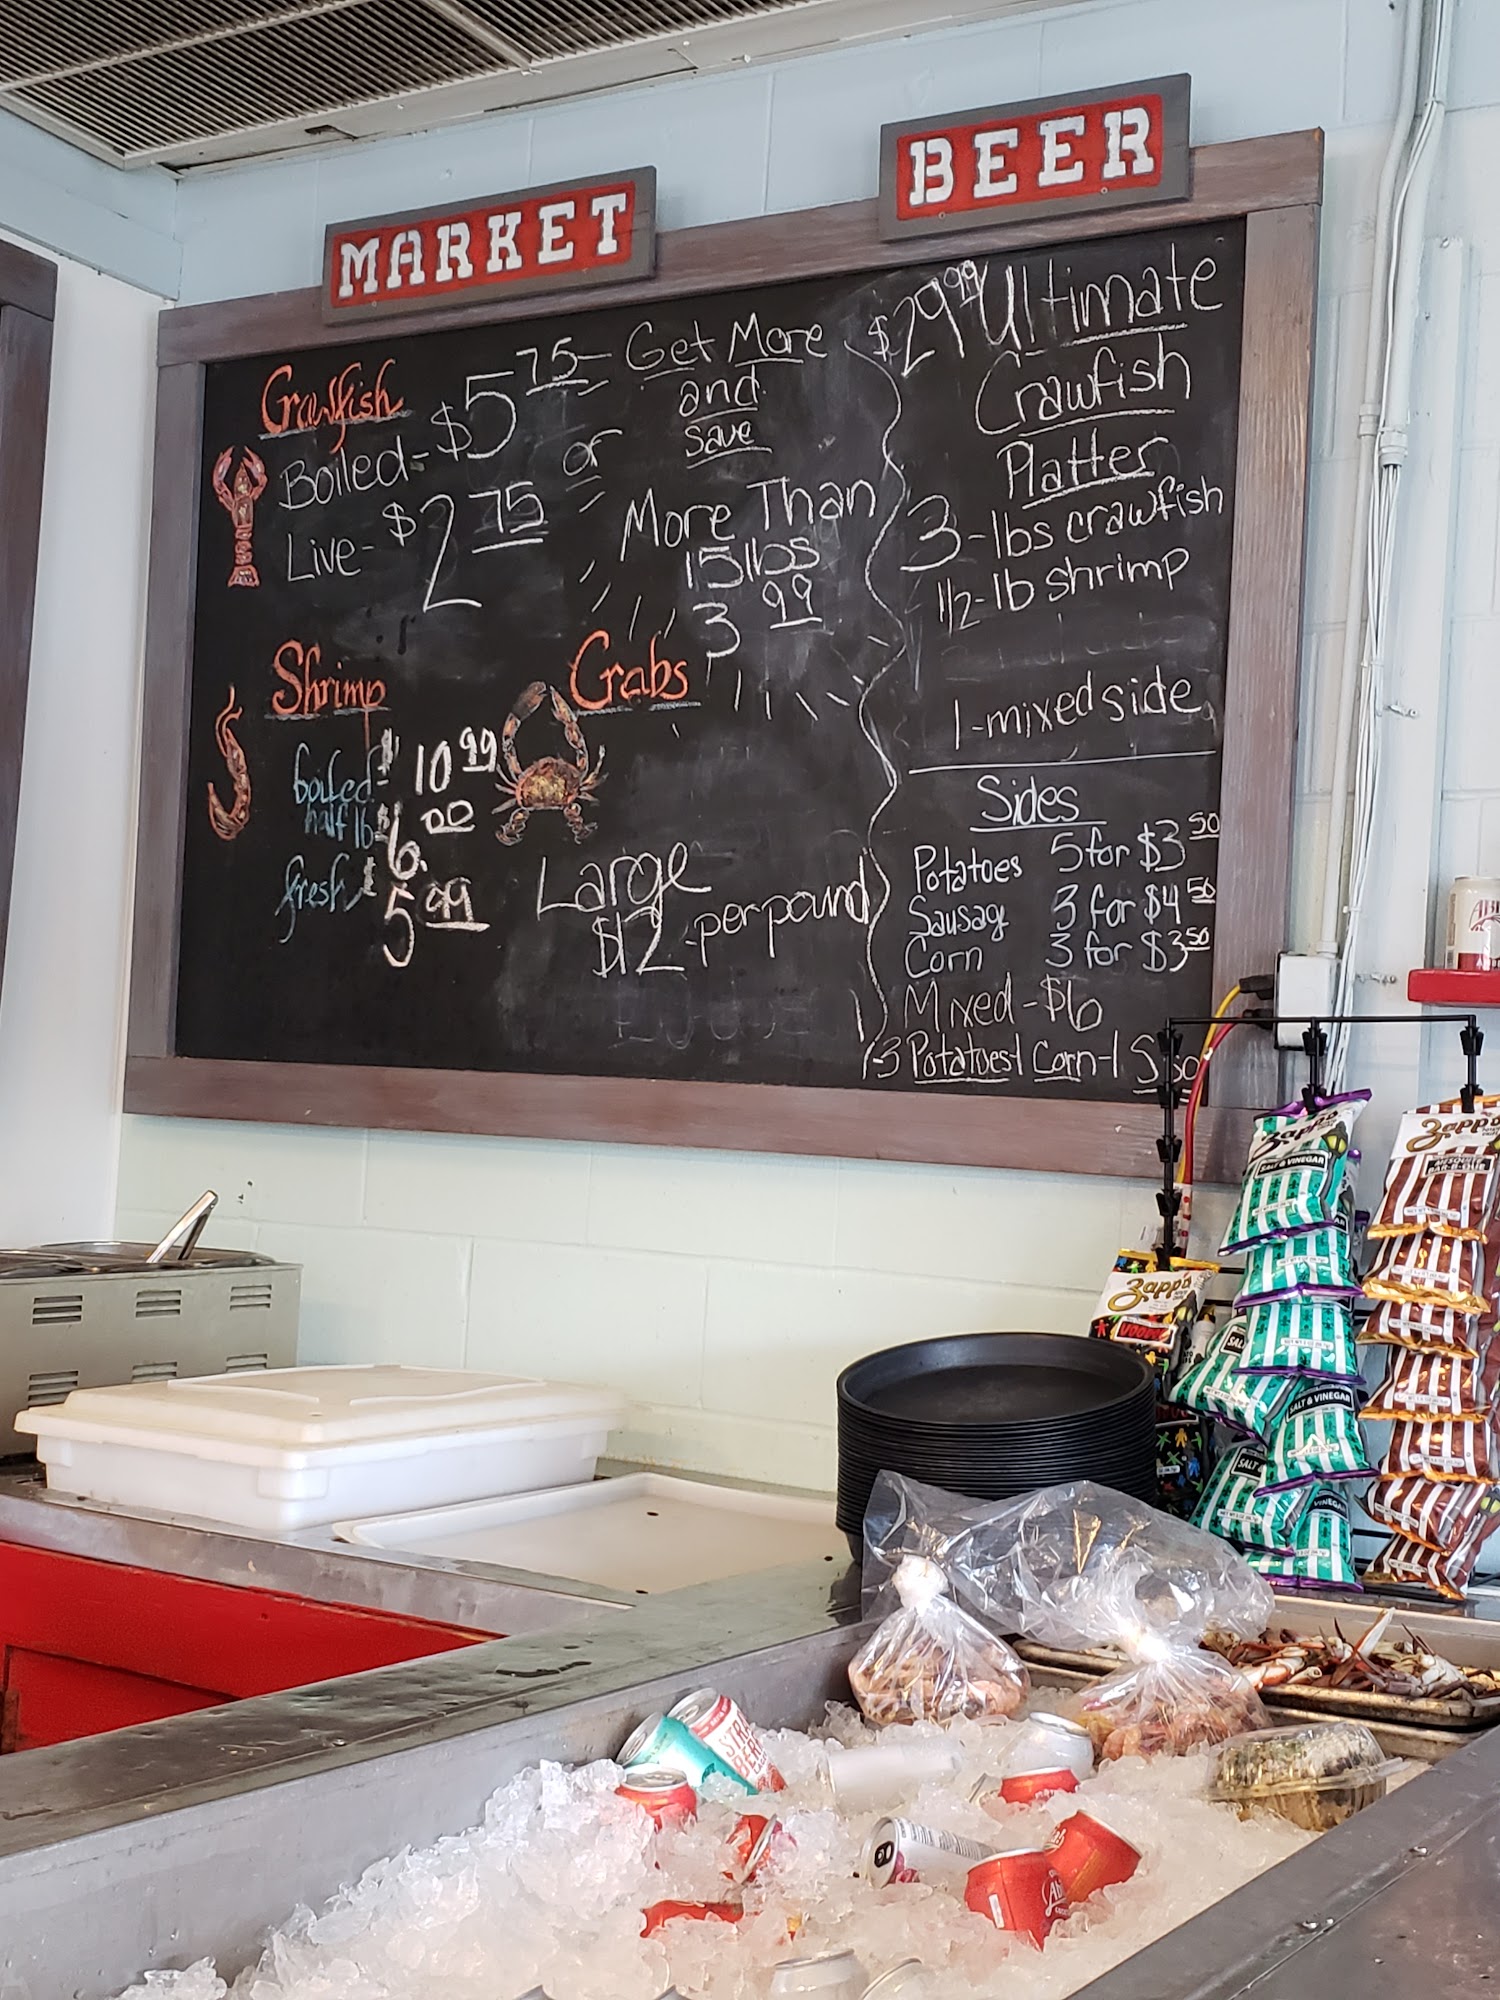 MARKET
BEER
Crawfish
Boiled - $5 75
Live - $2 75
Get More
and
save
or
More Than
15 lbs
3 99
Shrimp
boiled - $10 99
half lb $6.00
fresh $5 99
Crabs
Large
$12 - per pound
$29 99 Ultimate
Crawfish
Platter
3 - lbs crawfish
1/2 - lb shrimp
1 - mixed side
Sides
Potatoes 5 for $3 50
Sausag 3 for $4 50
Corn 3 for $3 50
Mixed - $6
1-3 Potatoes-1 Corn-1 S
Zapp's
SALT & VINEGAR
Zapp's
BAR-B-QUE
Zapp's
VOODOO
SALT & VINEGAR
SALT
VINEGAR
STRAW
BERRY